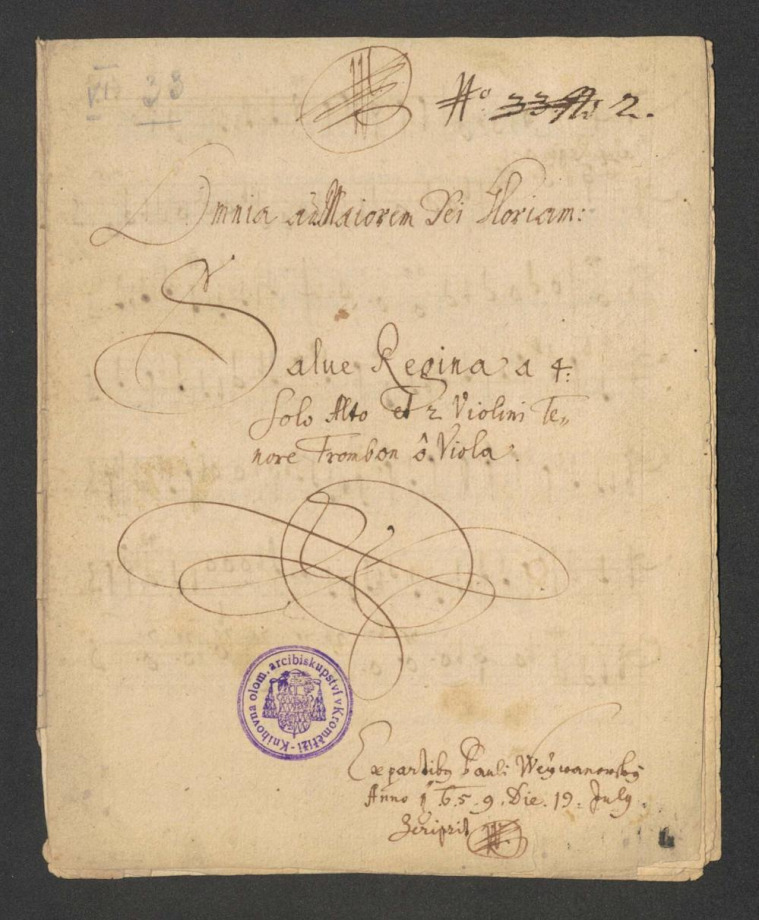 VI. 33
No. 33 2.
Omnia ad Maiorem Dei Gloriam:
Salue Regina: a 4:
Solo Alto et 2 Violini Te„
nore Trombon ô Viola:
Knihovna olom. arcibiskupství v Kroměříži
Ex partibus Pauli Weÿwanowskÿ
Anno 1.6.5.9. Die. 19. July.
Scripsit